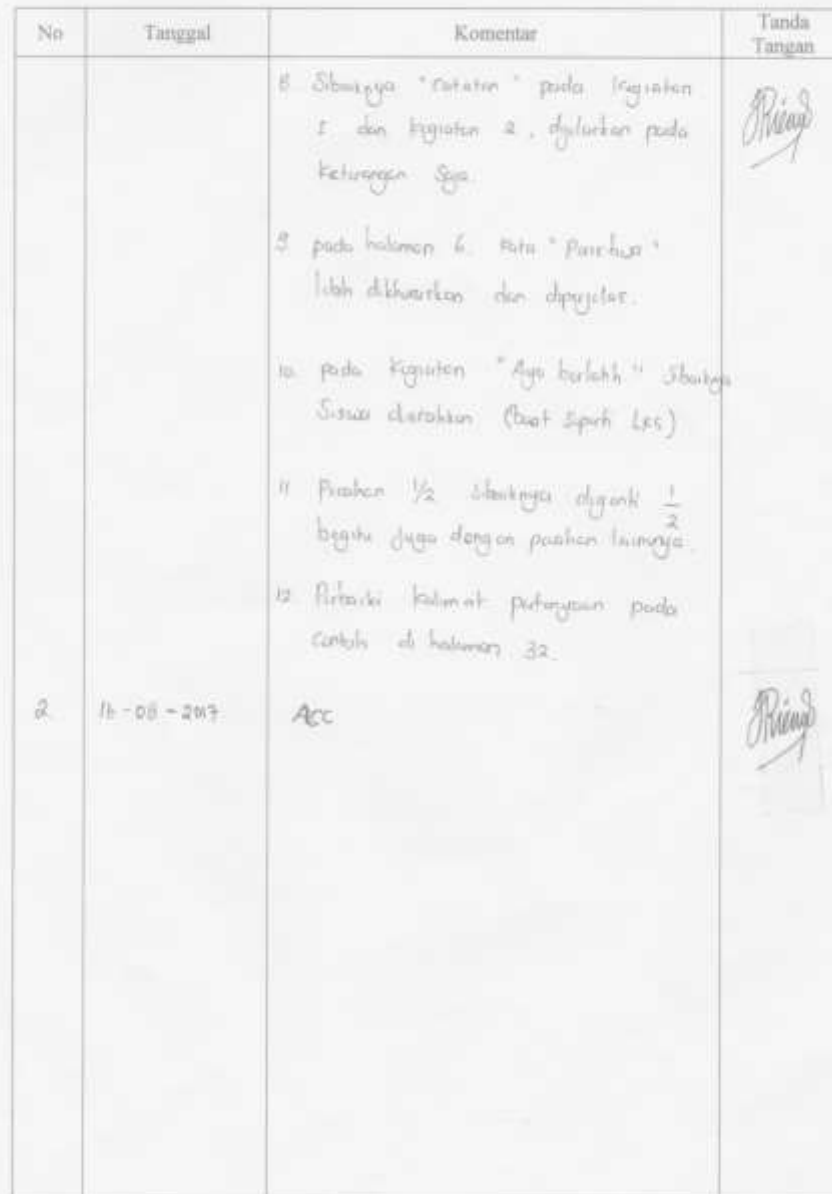 No Tanggal Komentar Tanda Tangan
8 Sebaiknya "catatan" pada kegiatan
1 dan kegiatan 2, dijelaskan pada
keterangan saja.
9 pada halaman 6. kata "Peristiwa"
lebih dikhususkan dan diperjelas.
10 pada kegiatan "Ayo berlatih" sebaiknya
Siswa diarahkan (buat seperti LKS)
11 Pecahan 1/2 sebaiknya diganti 1/2
begitu juga dengan pecahan lainnya.
12 Perbaiki kalimat pertanyaan pada
contoh di halaman 32.
2 16-08-2017 ACC